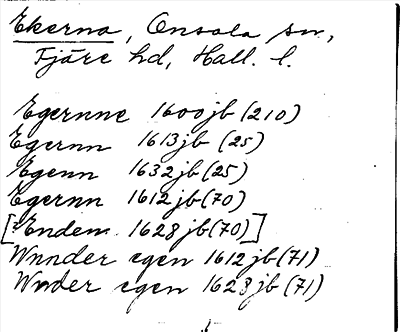 Ekerna, Onsala sn,
Fjäre hd, Hall. l.
Egernne 1600 jb (210)
Egernn 1613 jb (25)
Egenn 1632 jb (25)
Egernn 1612 jb (70)
[?Endem 1628 jb (70)]
Wnnder egen 1612 jb (71)
Wnder egen 1628 jb (71)